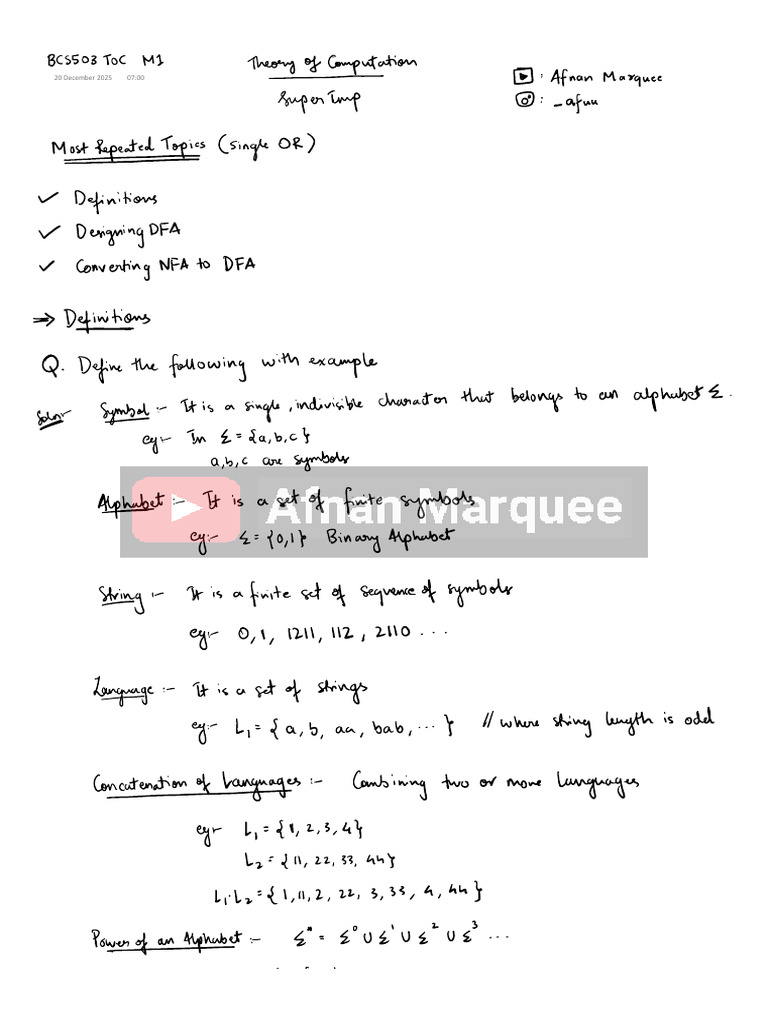 BCS503 TOC M1
20 December 2025 07:00
Theory of Computation
Super Imp
: Afnan Marquee
: _afuu
Most Repeated Topics (Single OR)
✓ Definitions
✓ Designing DFA
✓ Converting NFA to DFA
⇒ Definitions
Q. Define the following with example
Soln:- Symbol :- It is a single, indivisible character that belongs to an alphabet Σ.
eg:- In Σ = {a,b,c}
a,b,c are symbols
Alphabet :- It is a set of finite symbols
Afnan Marquee
eg:- Σ = {0,1} Binary Alphabet
String :- It is a finite set of sequence of symbols
eg:- 0, 1, 1211, 112, 2110 ...
Language :- It is a set of strings
eg:- L₁ = {a, b, aa, bab, ... } // where string length is odd
Concatenation of Languages :- Combining two or more languages
eg:- L₁ = {1, 2, 3, 4}
L₂ = {11, 22, 33, 44}
L₁·L₂ = {1, 11, 2, 22, 3, 33, 4, 44}
Power of an Alphabet :- Σ* = Σ⁰ ∪ Σ¹ ∪ Σ² ∪ Σ³ ...